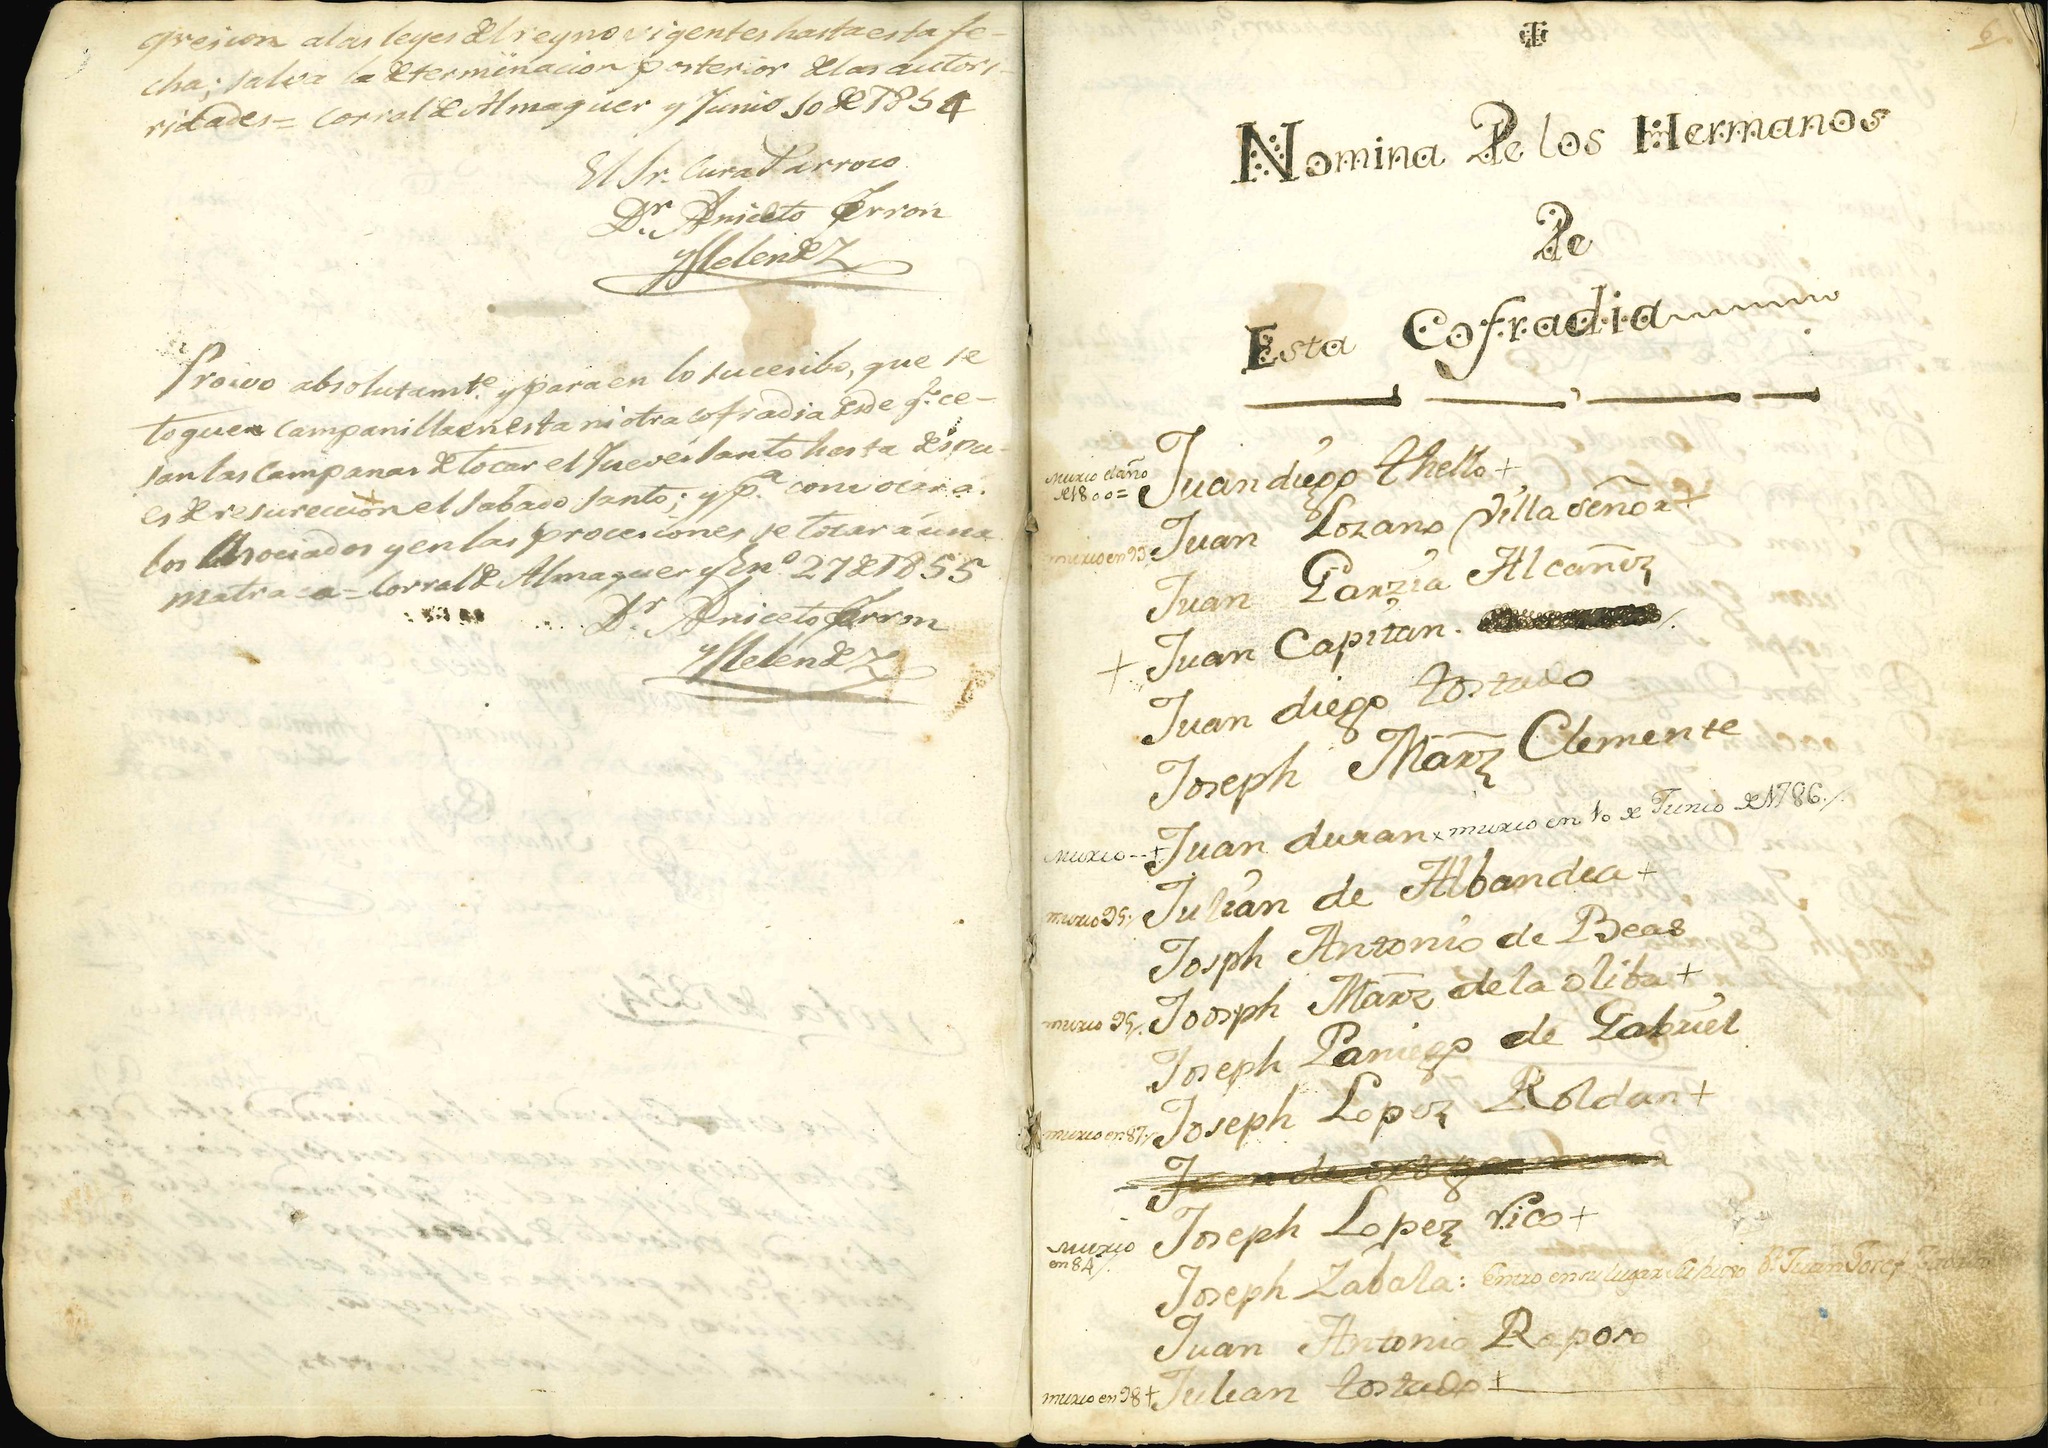 gresion a las leyes del reyno vigentes hasta esta fe-
cha; salva la determinacion posterior de las autori-
ridades= Corral de Almaguer y Junio 10 de 1854
El Sr. Cura Parroco
Dr. Aniceto Terron
y Melendez
Proivo absolutamte. y para en lo sucesibo, que se
toquen campanilla en esta ni otra cofradia desde q.e ce-
san las campanas de tocar el Jueves Santo hasta despu-
es de resureccion el sabado santo; y p.a convocar a
los Asociados y en las procesiones se tocará una
matraca= Corral de Almaguer y En.o 27 de 1855
Dr. Aniceto Terron
y Melendez
6
Nomina De los Hermanos
De
Esta Cofradia
murio el año de 1800= Juan diego thello +
murio en 95 Juan Lozano Villa señor +
Juan Garzia Alcañiz
+ Juan Capitan.
Juan diego tostado
Joseph Marz Clemente
murio--+ Juan duran x murio en 10 de Junio de 1786./.
murio 95/. Julian de Albandea +
Joseph Antonio de Beas
murio 95/. Joseph Marz de la oliba +
Joseph Paniego de Gabriel
murio en 87/. Joseph Lopez Roldan +
murio en 84/. Joseph Lopez rico +
Joseph Zabala: Entro en su lugar su hijo Dn Juan Josef
Juan Antonio Raposo
murio en 98 + Julian tostado +